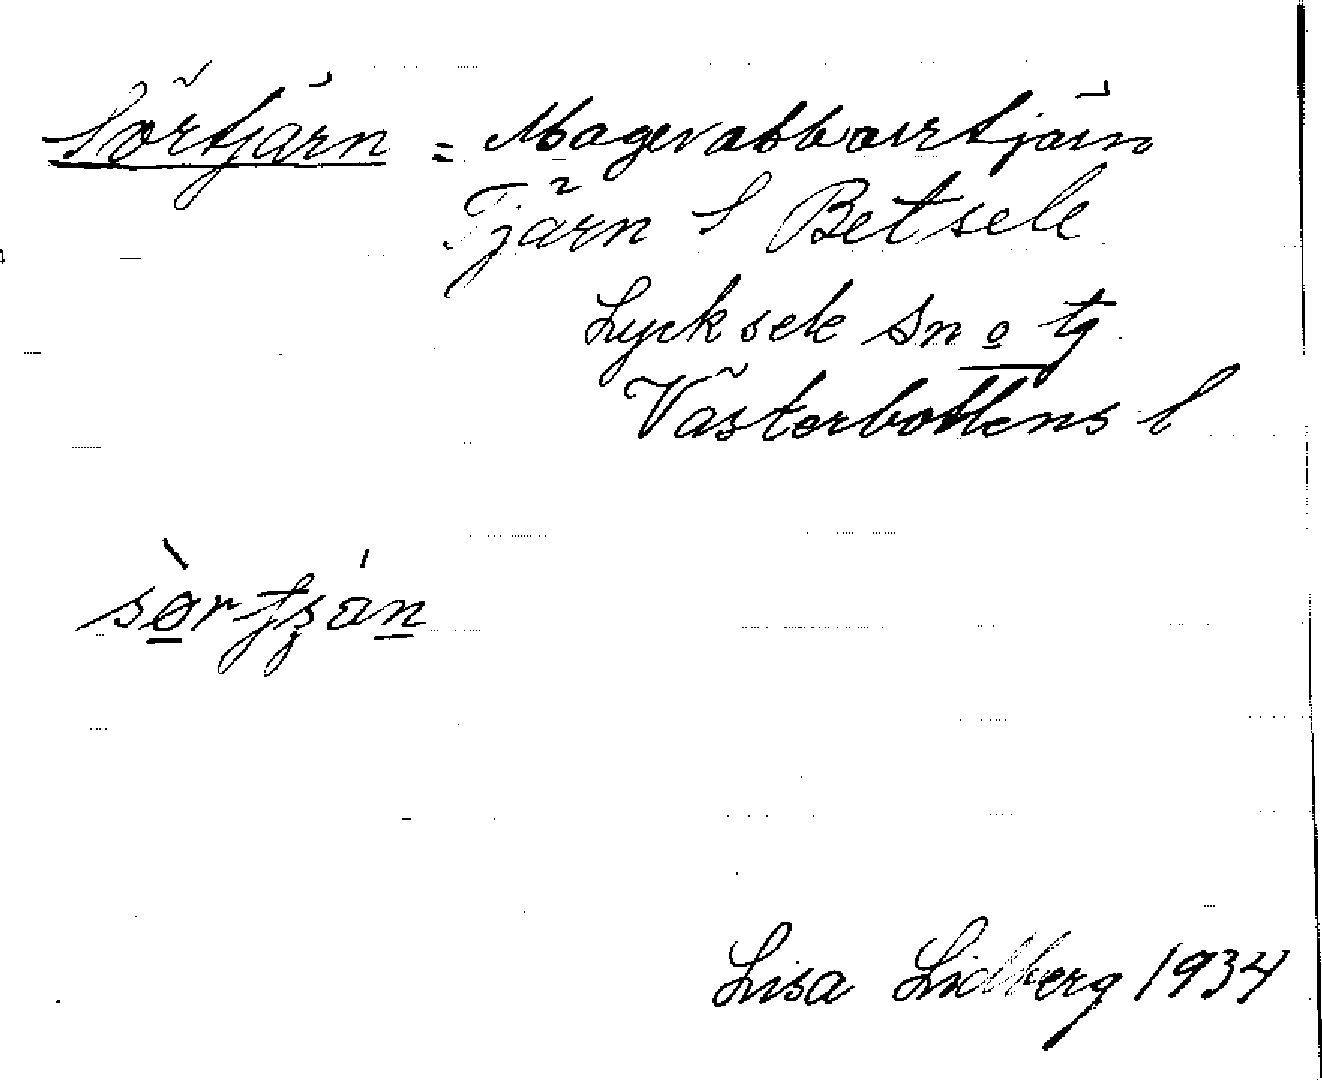 Sörtjärn = Magerabborrtjärn
Tjärn S Betsele
Lycksele Sn o tg
Västerbottens l
Lisa Lidberg 1934